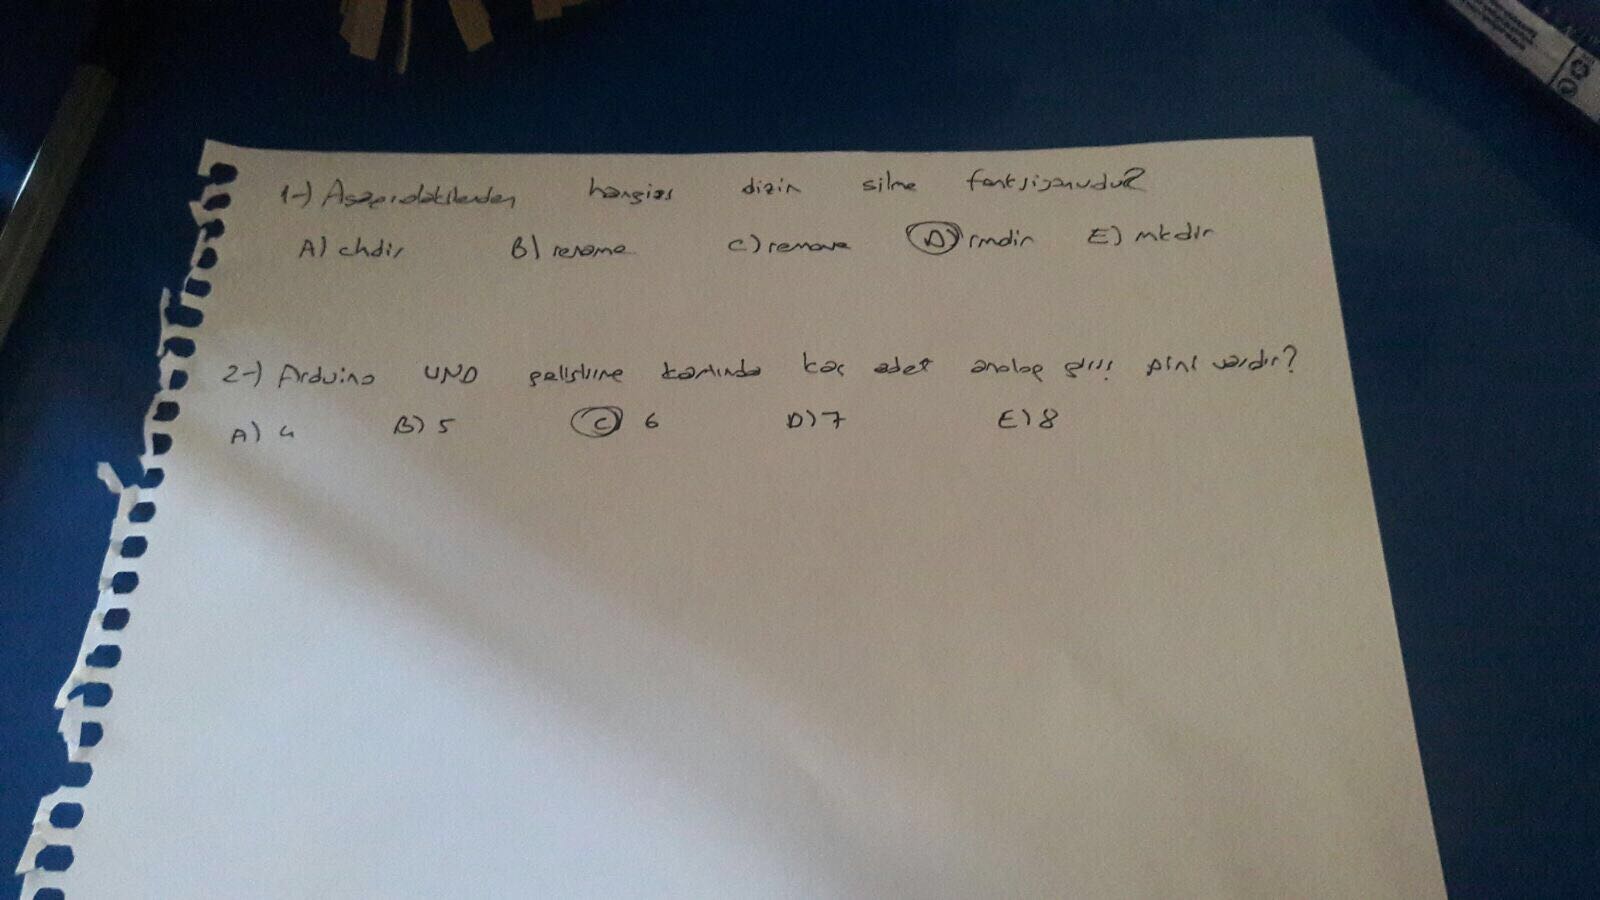 1-) Aşağıdakilerden hangisi dizin silme fonksiyonudur?
A) chdir B) rename C) remove D) rmdir E) mkdir
2-) Arduino UNO geliştirme kartında kaç adet analog giriş pini vardır?
A) 4 B) 5 C) 6 D) 7 E) 8